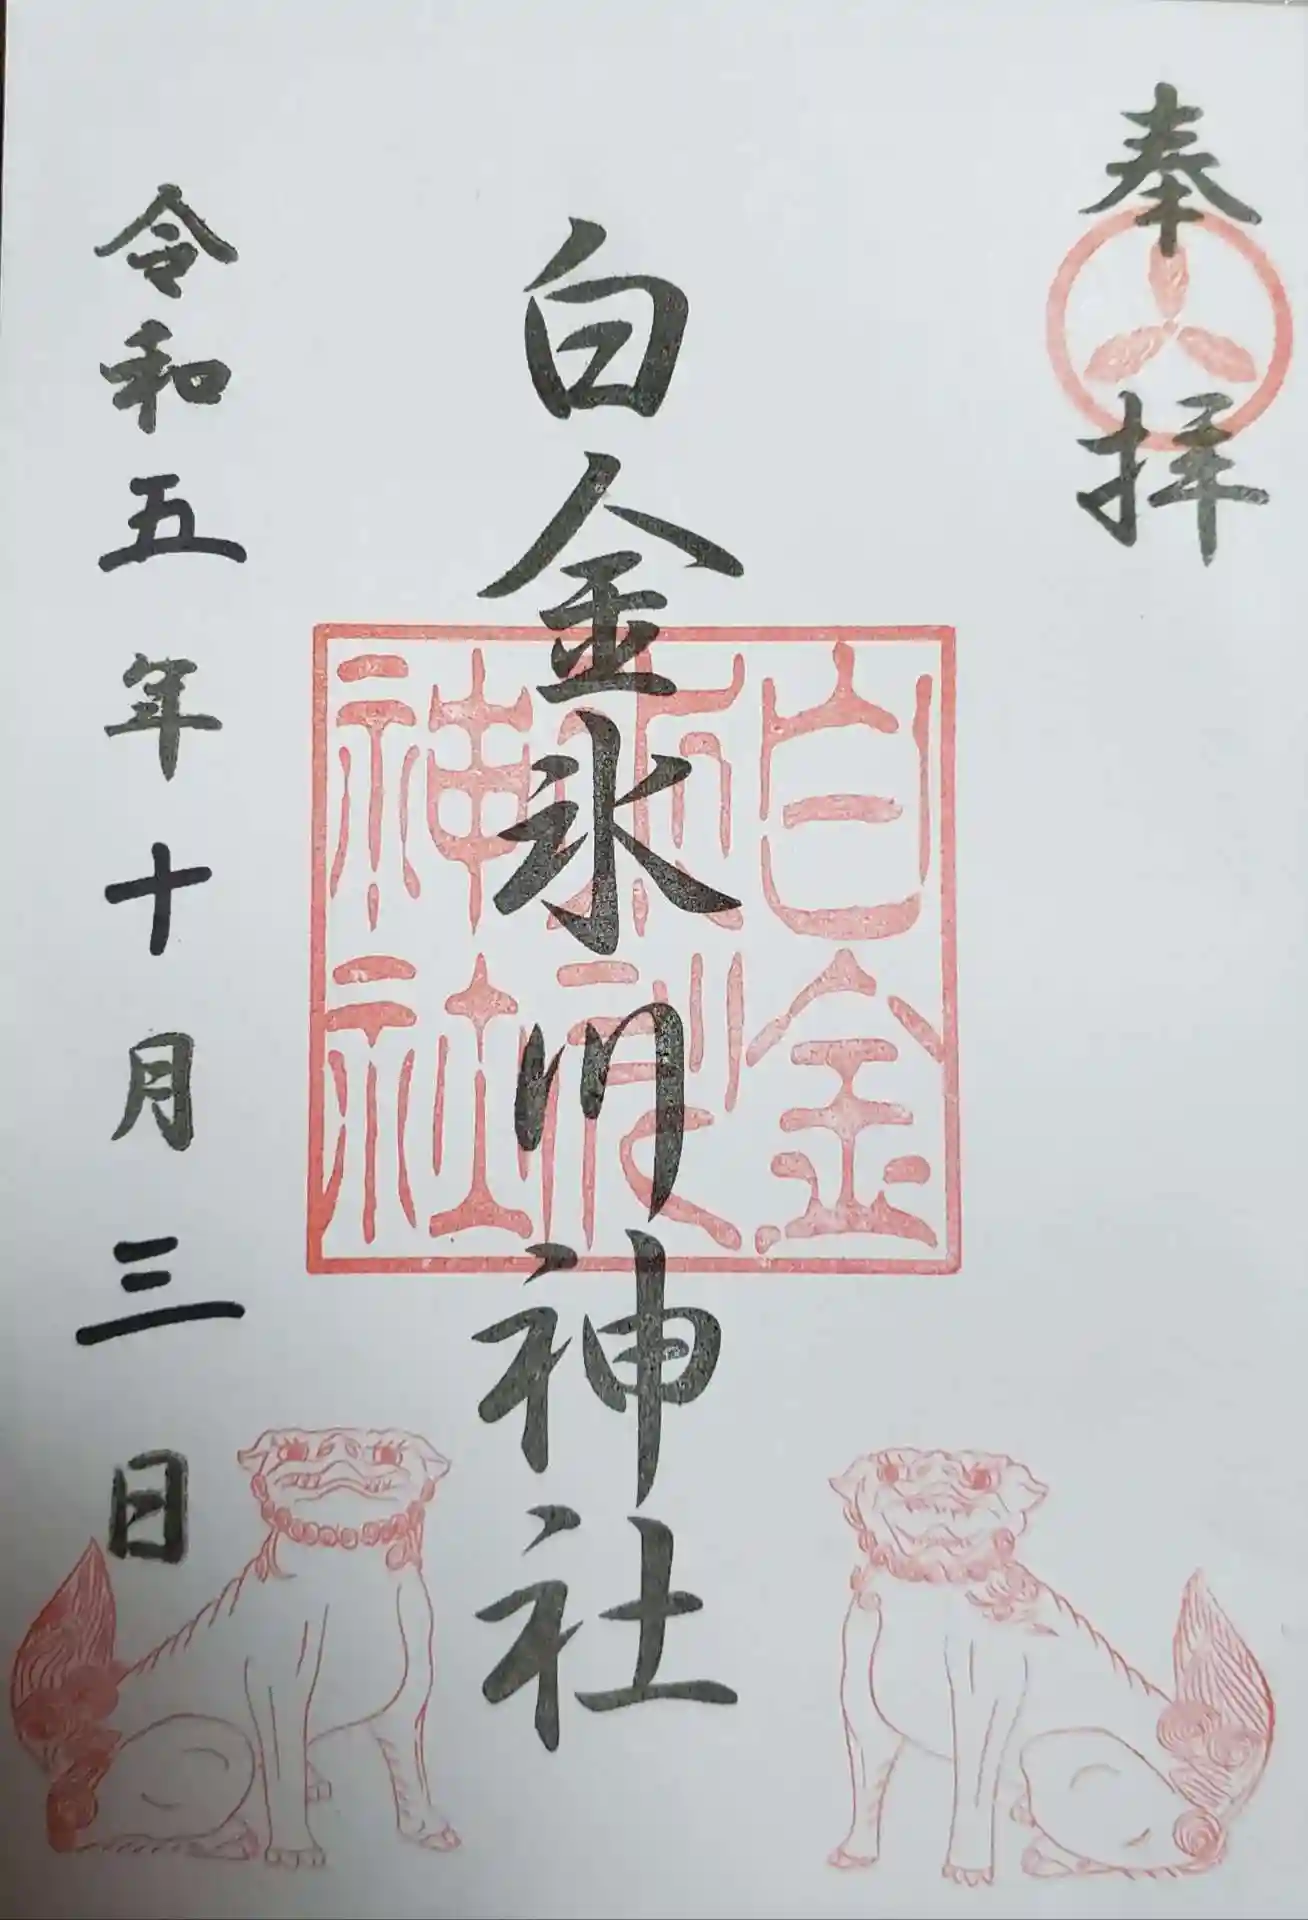 奉拝
白金氷川神社
白金
氷川
神社
令和五年十月三日